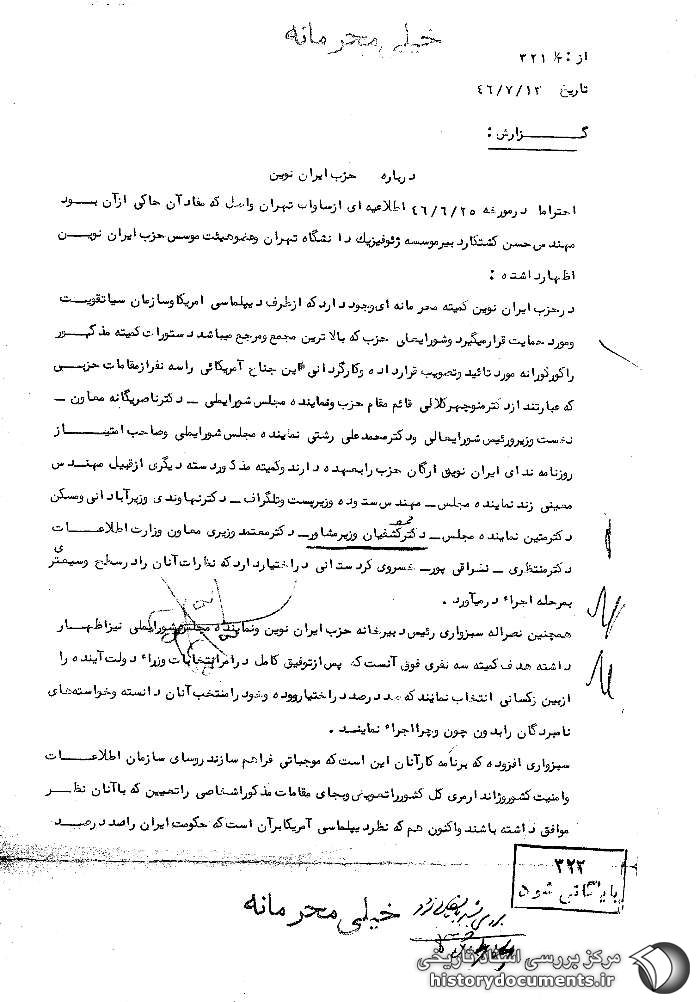 خیلی محرمانه
از : ۳۲۱
تاریخ ۴۶/۷/۱۲
گزارش :
درباره حزب ایران نوین
احتراما در مورخه ۴۶/۶/۲۵ اطلاعیه ای از ساواک تهران واصل که مفاد آن حاکی از آن بود
مهندس حسن کشتکار دبیر موسسه ژئوفیزیک دانشگاه تهران و عضو هیئت موسس حزب ایران نوین
اظهار داشته :
در حزب ایران نوین کمیته محرمانه ای وجود دارد که از طرف دیپلماسی امریکا و سازمان سیا تقویت
و مورد حمایت قرار میگیرد و شورایعالی حزب که بالاترین مجمع و مرجع میباشد دستورات کمیته مذکور
را کورکورانه مورد تائید و تصویب قرار داده و کارگردانی این جناح آمریکائی را سه نفر از مقامات حزبی
که عبارتند از دکتر منوچهر کلالی قائم مقام حزب و نماینده مجلس شورایملی ـ دکتر ناصر یگانه معاون ـ
نخست وزیر و رئیس شورایعالی و دکتر محمد علی رشتی نماینده مجلس شورایملی و صاحب امتیاز
روزنامه ندای ایران نوین ارگان حزب را بعهده دارند و کمیته مذکور دسته دیگری از قبیل مهندس
معینی زند نماینده مجلس ـ مهندس ستوده وزیر پست و تلگراف ـ دکتر نهاوندی وزیر آبادانی و مسکن
دکتر متین نماینده مجلس ـ دکتر کشفیان وزیر مشاور ـ دکتر معتمد وزیری معاون وزارت اطلاعات
دکتر منتظری ـ نصراقی پور ـ خسروی کردستانی در اختیار دارد که نظرات آنان را در سطح وسیعتری
بمرحله اجراء در میآورد .
همچنین نصراله سبزواری رئیس دبیرخانه حزب ایران نوین و نماینده مجلس شورایملی نیز اظهار
داشته هدف کمیته سه نفری فوق آنست که پس از توفیق کامل در امر انتخابات وزراء دولت آینده را
از بین کسانی انتخاب نمایند که صد درصد در اختیار بوده و خود را منتخب آنان دانسته و خواسته های
نامبردگان را بدون چون و چرا اجراء نمایند .
سبزواری افزوده که برنامه کار آنان این است که موجباتی فراهم سازند روسای سازمان اطلاعات
و امنیت کشور و ژاندارمری کل کشور را تعویض و بجای مقامات مذکور اشخاصی را تعیین که با آنان نظر
موافق داشته باشند و اکنون هم که نظر دیپلماسی آمریکا بر آن است که حکومت ایران را صد درصد
۳۲۲
بایگانی شود
خیلی محرمانه
مرکز بررسی اسناد تاریخی
historydocuments.ir